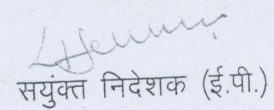 सयुंक्त निदेशक (ई.पी.)